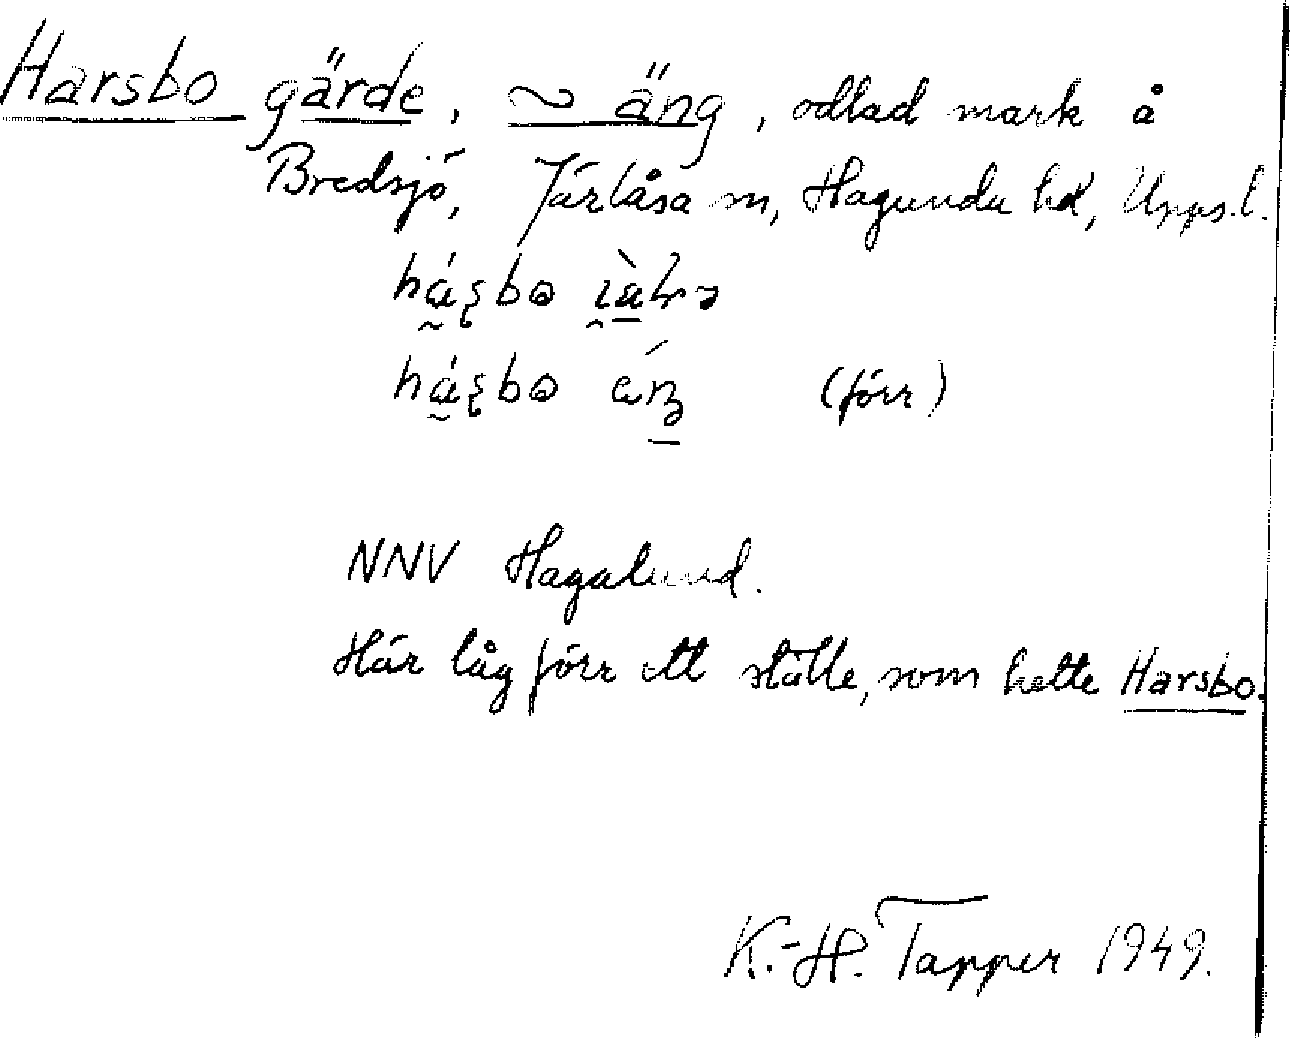 Harsbo gärde, ~ äng, odlad mark å
Bredsjö, Järlåsa sn, Hagunda hd, Upps.l.
(förr)
NNV Hagalund.
Här låg förr ett ställe, som hette Harsbo.
K.-H. Tapper 1949.